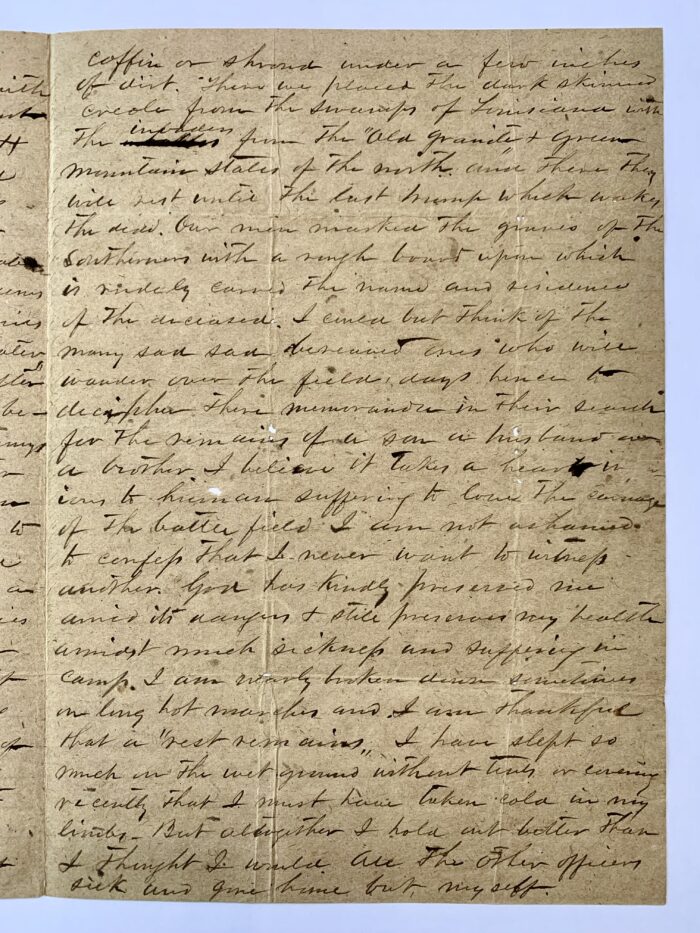 coffin or shroud under a few inches
of dirt. There we placed the dark skinned
creole from the swamps of Louisiana with
the invaders from the "Old granite & Green
mountain states of the north and there they
will rest until the last trump which wakes
the dead. Our men marked the graves of the
Southerners with a rough board upon which
is rudely carved the name and residence
of the deceased. I could but think of the
many sad sad bereaved ones who will
wander over the field, days hence to
decipher these memoranda in their search
for the remains of a son a husband or
a brother I believe it takes a heart
to human suffering to love the carnage
of the battle field I am not ashamed
to confess that I never want to witness
another. God has kindly preserved me
amid its dangers & still preserves my health
amidst much sickness and suffering in
camp. I am nearly broken down sometimes
on long hot marches and I am thankful
that a "rest remains" I have slept so
much on the wet ground without tents or covering
recently that I must have taken cold in my
limbs - But altogether I hold out better than
I thought I would All the other officers
sick and gone home but myself.
with
to
a
of